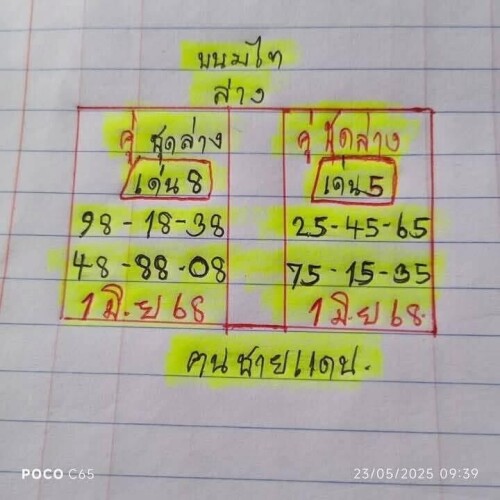 ขนมไท
ล่าง
คู่ ชุดล่าง
เด่น 8
98-18-38
48-88-08
1 มิ.ย 68
คู่ ชุดล่าง
เด่น 5
25-45-65
75-15-35
1 มิ.ย 68.
คนชายแดน.
POCO C65
23/05/2025 09:39